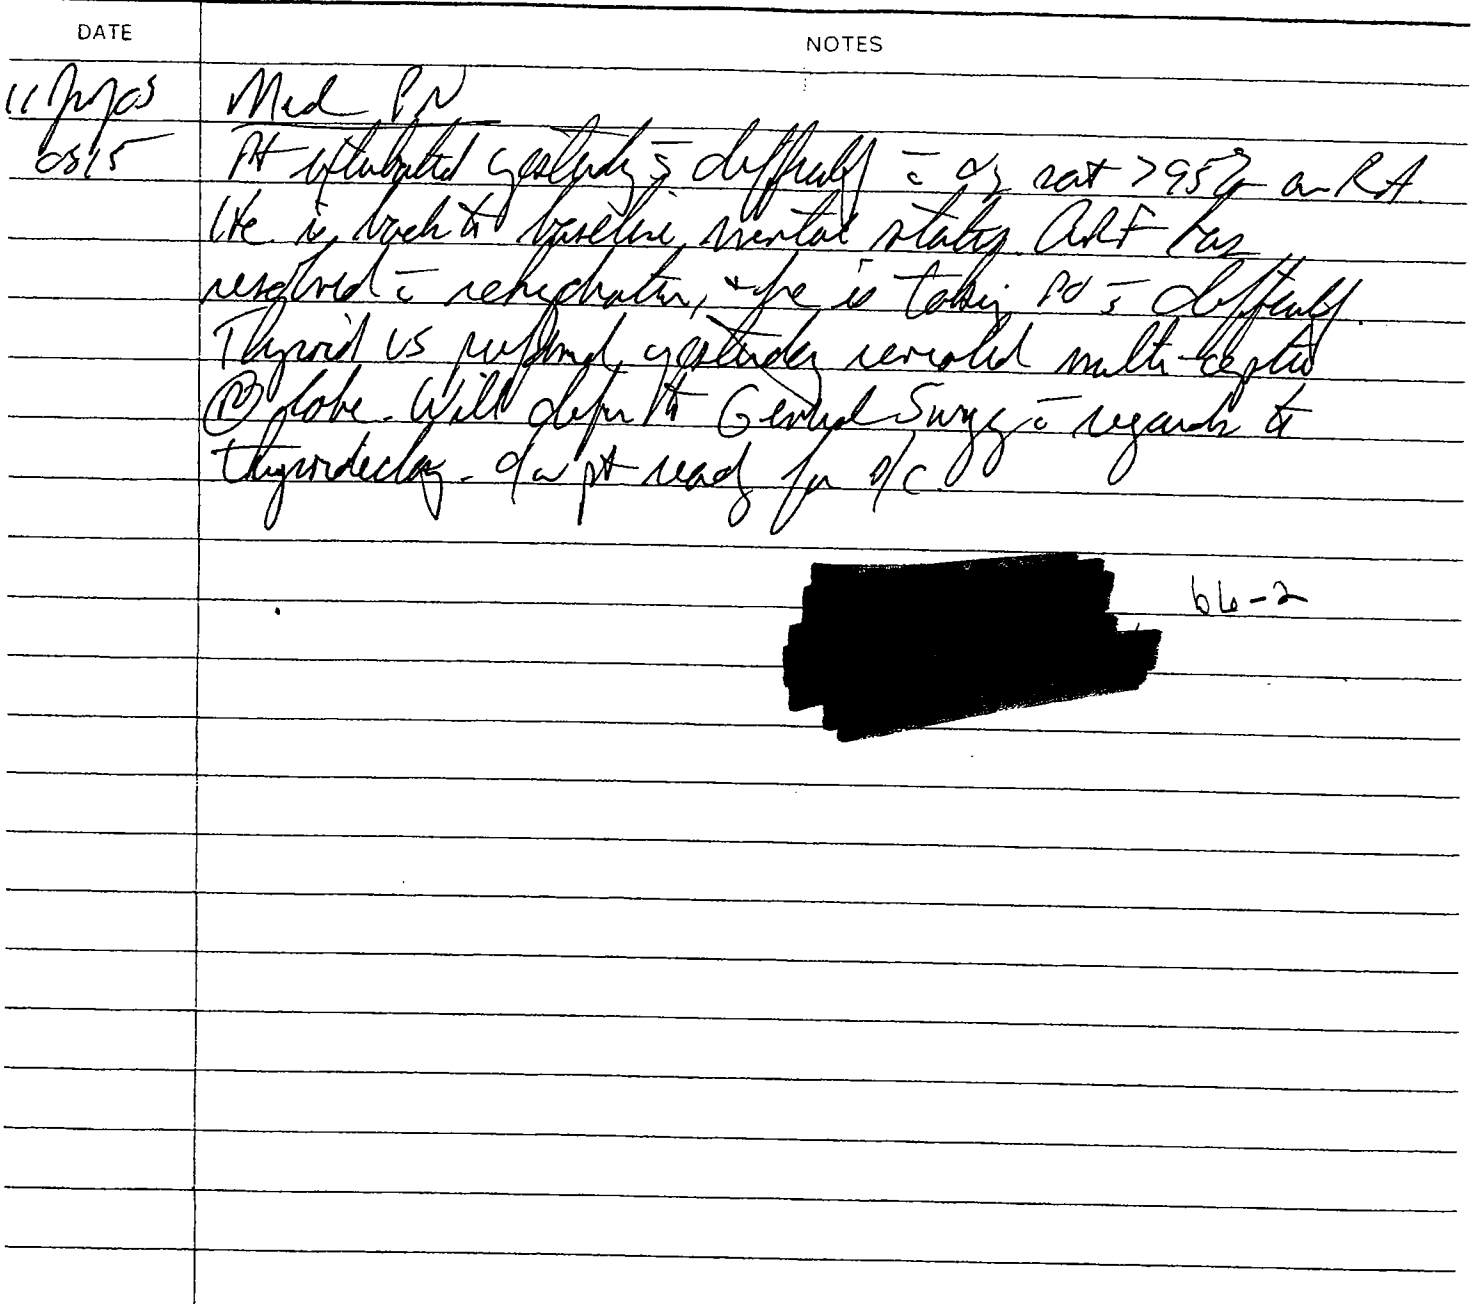 DATE NOTES
Med PN
0815 Pt extubated yesterday s̄ difficulty c̄ O2 sat >95% on RA.
He is back to baseline mental status. ARF has
resolved c̄ rehydration, + he is taking PO s̄ difficulty.
Thyroid US performed yesterday revealed multi-
lobe. Will defer to General Surgery c̄ regards to
thyroidectomy. pt ready for d/c.
b6-2